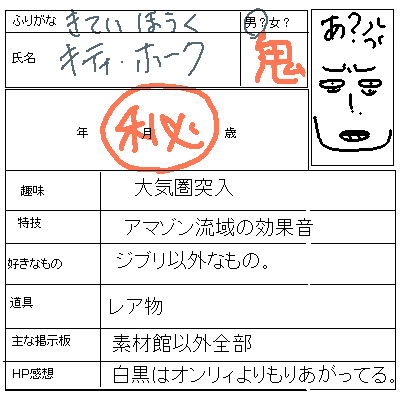 ふりがな きてぃ ほうく 男?女?
氏名 キティ・ホーク 鬼
あ?ハっ
年 月 歳
秘
趣味 大気圏突入
特技 アマゾン流域の効果音
好きなもの ジブリ以外なもの。
道具 レア物
主な掲示板 素材館以外全部
HP感想 白黒はオンリィよりもりあがってる。